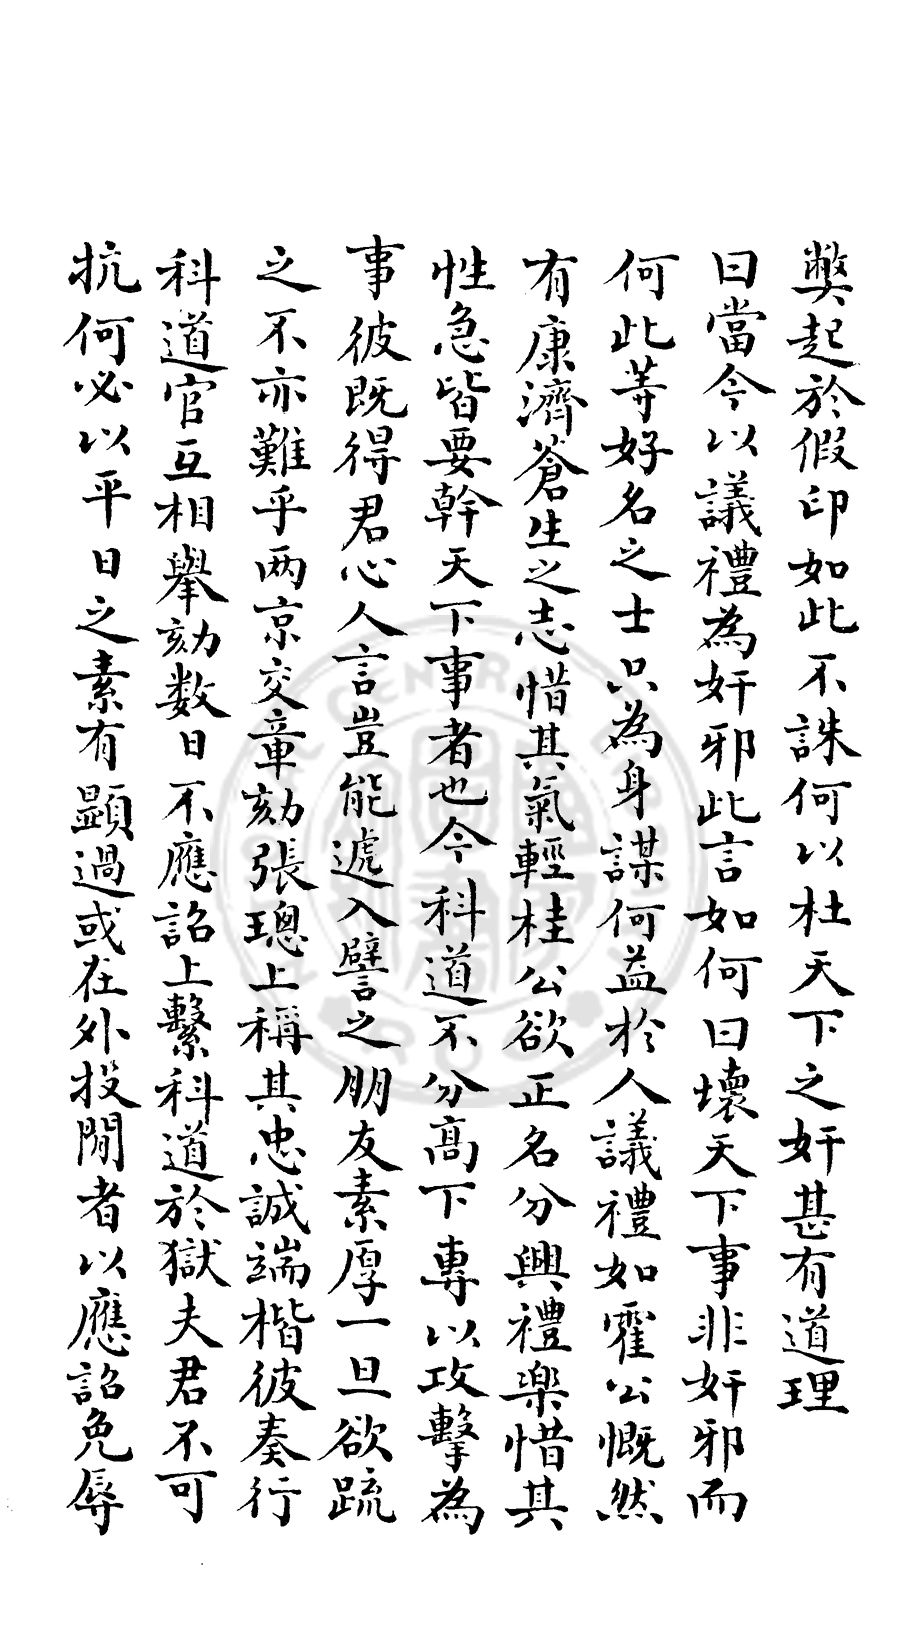 獘起於假印如此不誅何以杜天下之奸甚有道理
曰當今以議禮為奸邪此言如何曰壞天下事非奸邪而
何此等好名之士只為身謀何益於人議禮如霍公慨然
有康濟蒼生之志惜其氣輕桂公欲正名分興禮樂惜其
性急皆要幹天下事者也今科道不分高下專以攻擊為
事彼既得君心人言豈能遽入譬之朋友素厚一旦欲疏
之不亦難乎两京交章劾張璁上稱其忠誠端楷彼奏行
科道官互相舉劾数日不應詔上繫科道於獄夫君不可
抗何必以平日之素有顕過或在外投閒者以應詔免辱
CENTRAL